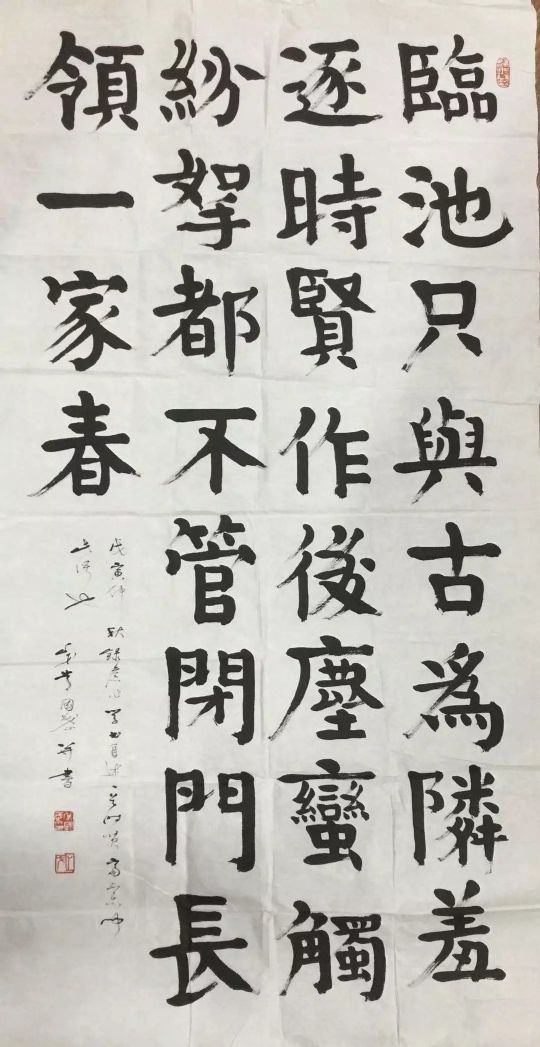 臨池只與古為隣羞
逐時賢作後塵蠻觸
紛挐都不管閉門長
領一家春
戊寅仲秋錄 書自述
書